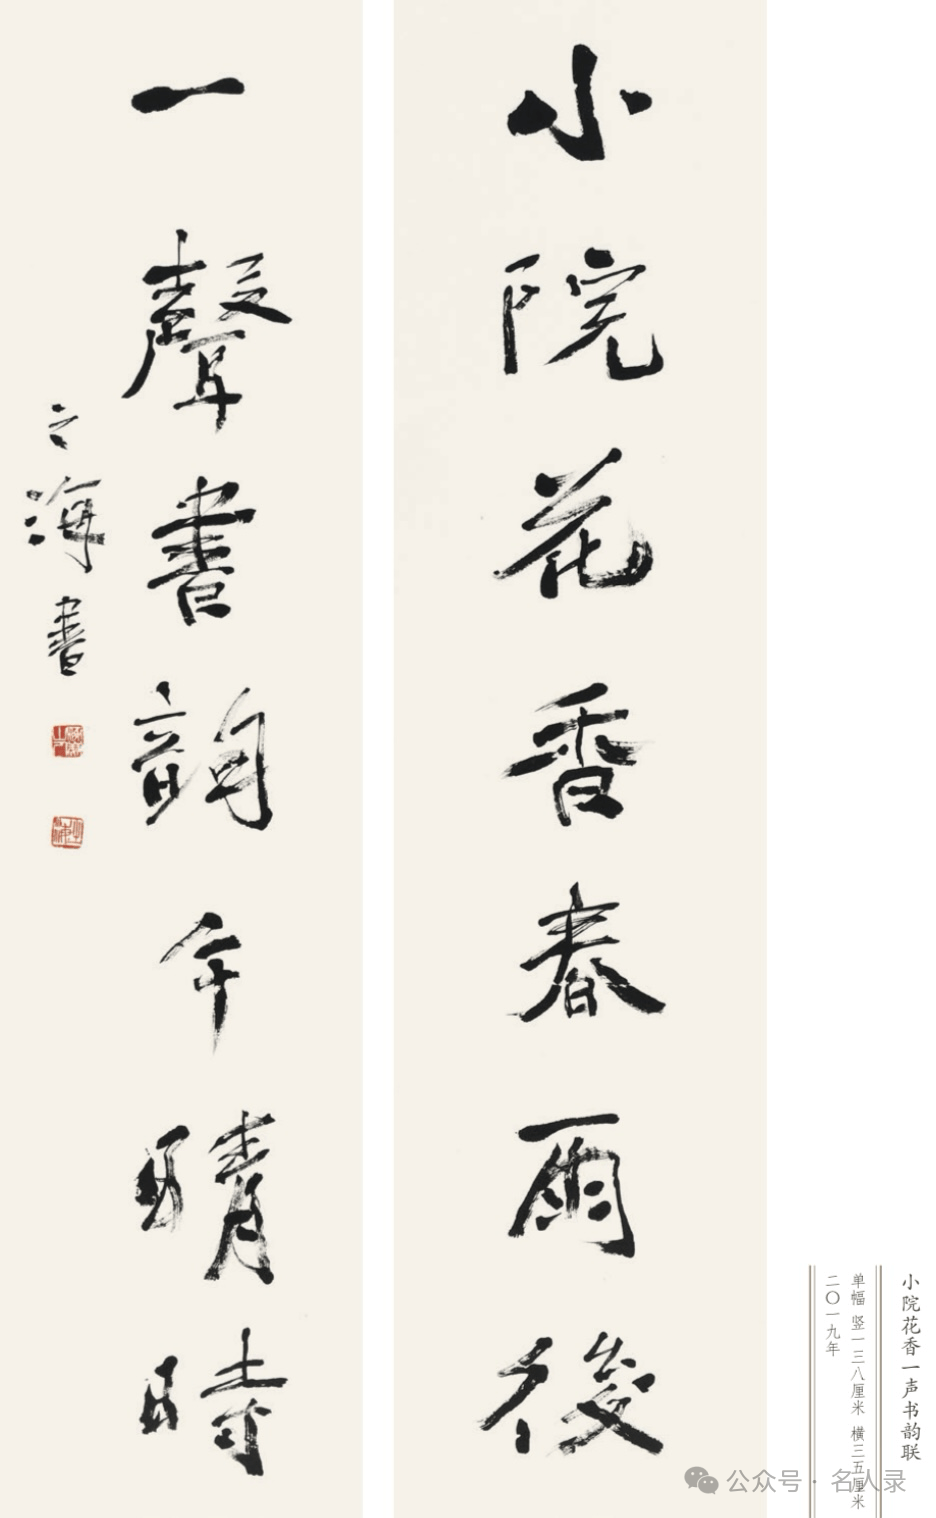 小院花香春雨後
一聲書韻午晴時
之海書
小院花香一声书韵联
单幅 竖一三八厘米 横三五厘米
二〇一九年
公众号·名人录